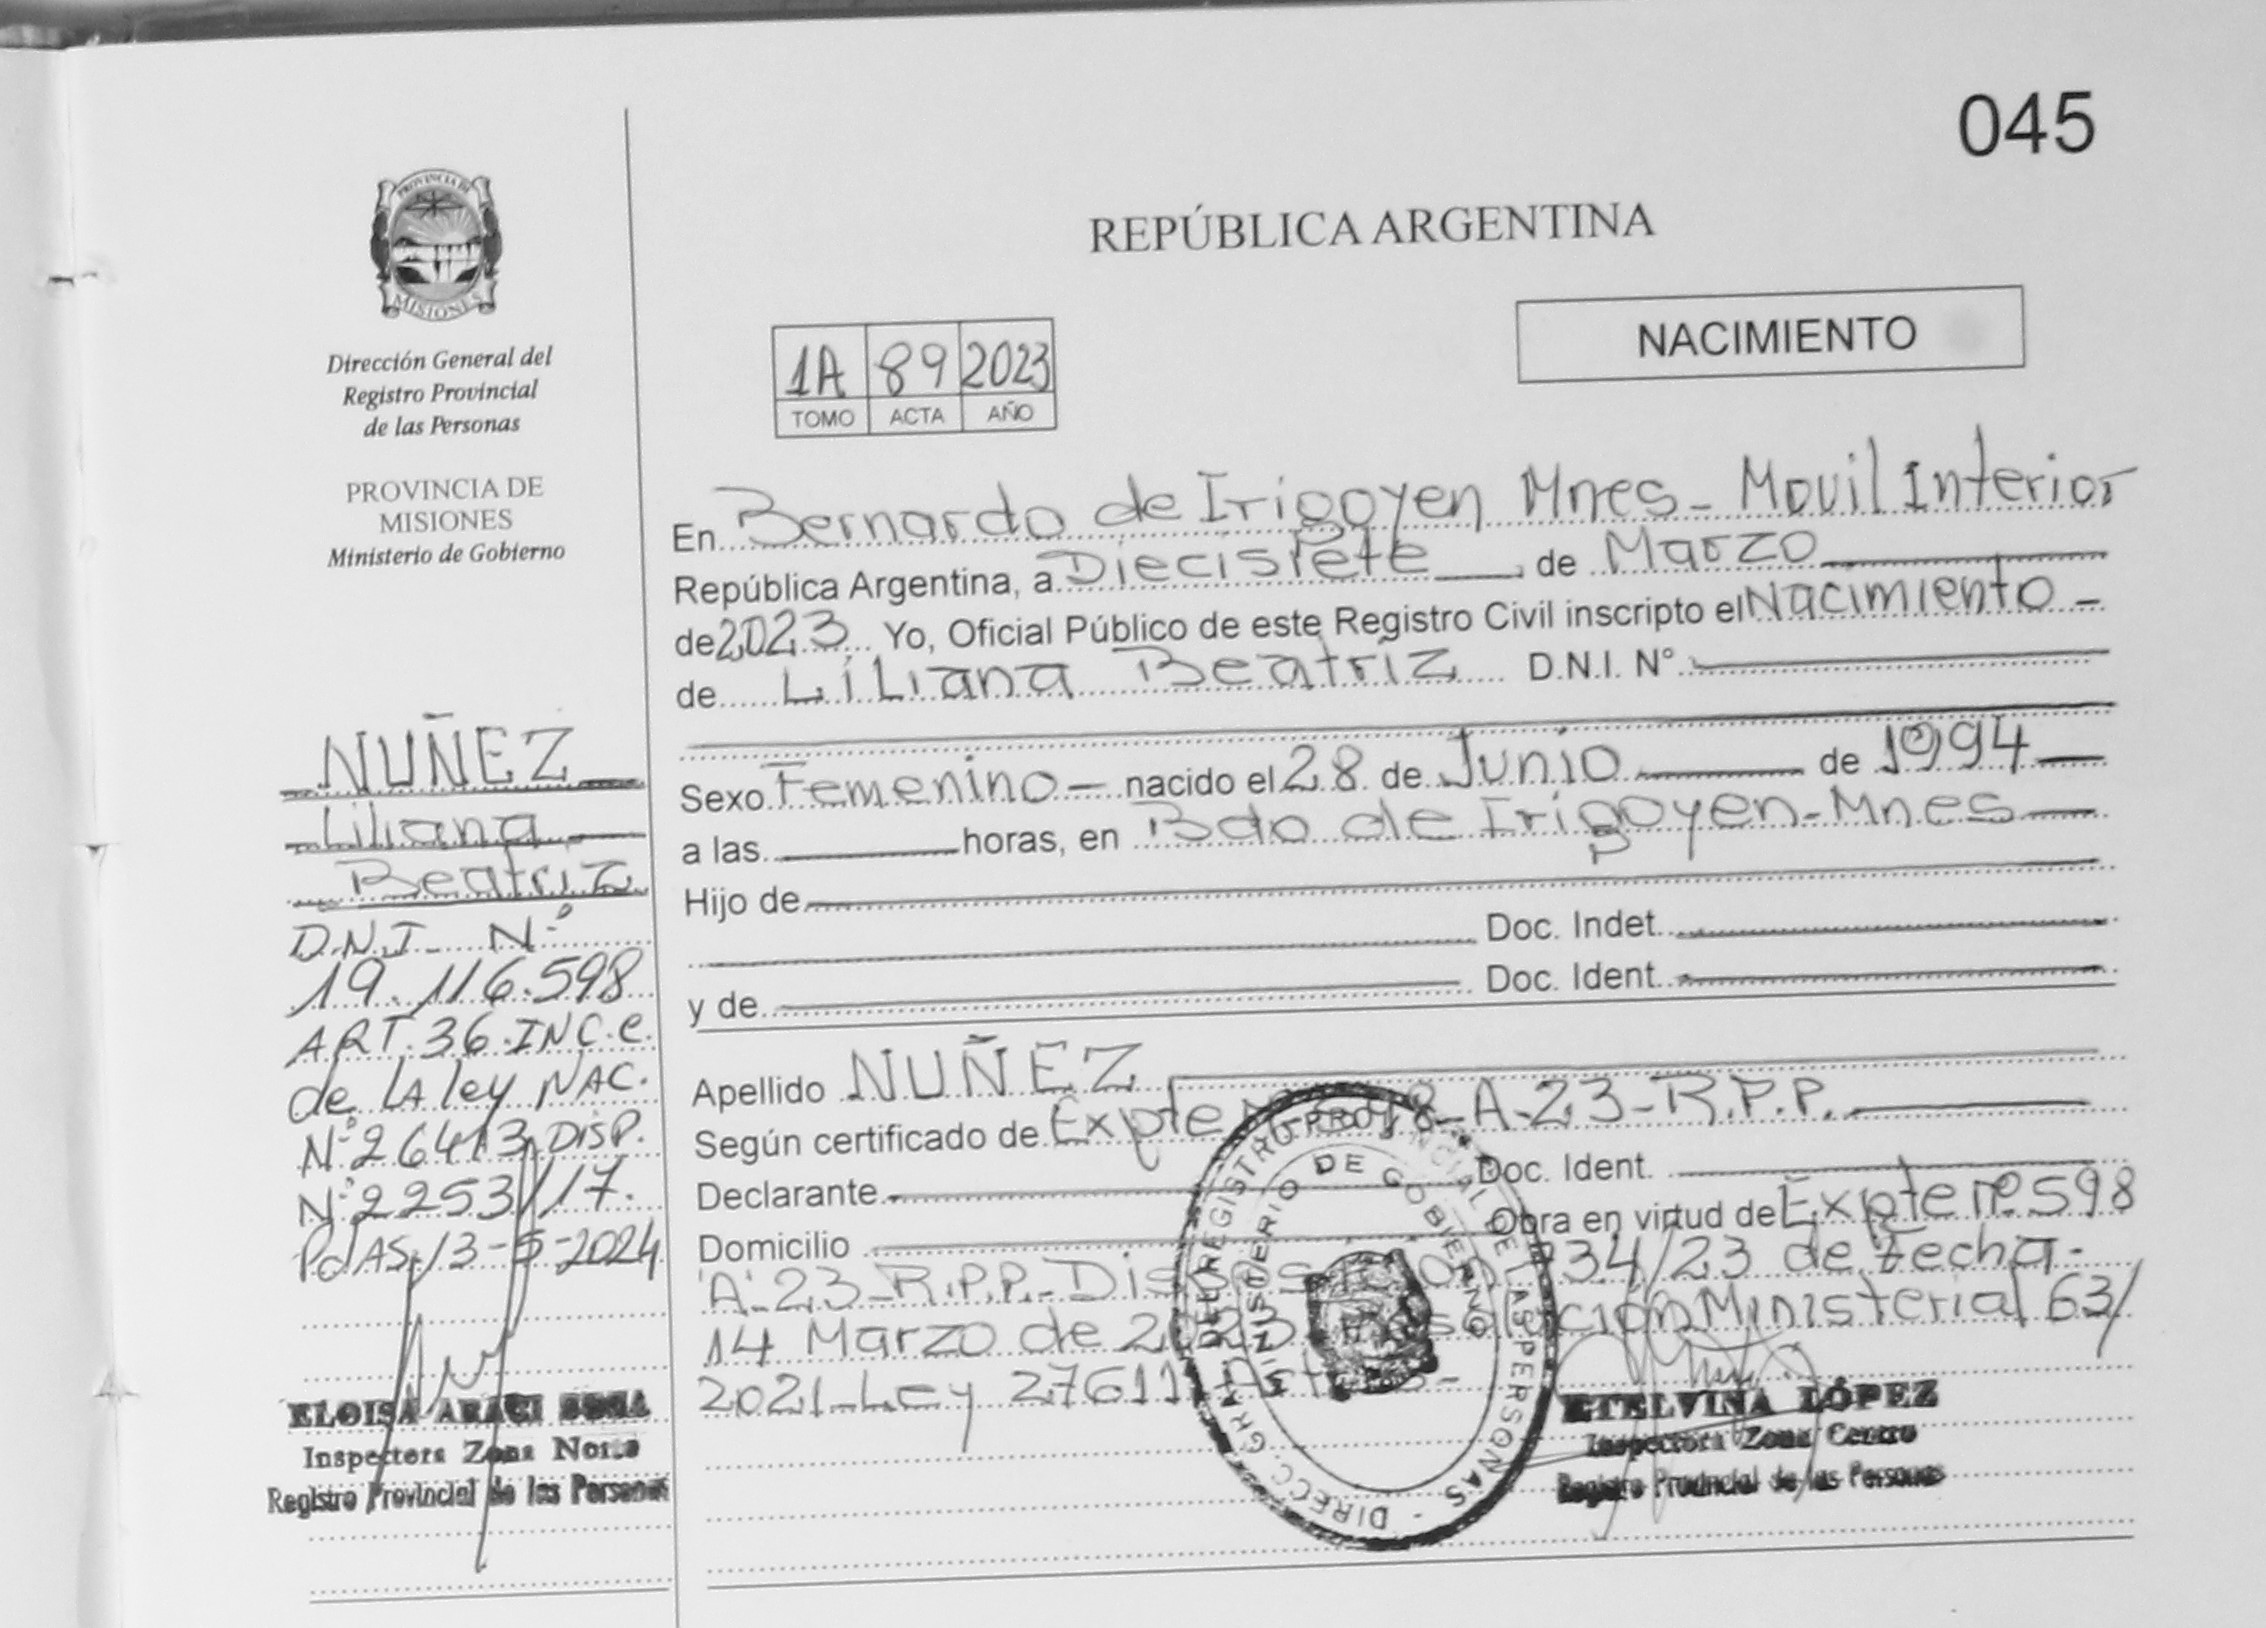 045
PROVINCIA DE
MISIONES
Dirección General del
Registro Provincial
de las Personas
PROVINCIA DE
MISIONES
Ministerio de Gobierno
NUÑEZ
Liliana
Beatriz
D.N.I. Nº
19.116.598
ART. 36. INC. e.
de LA ley NAC.
Nº 26413 DISP.
Nº 2253/17.
PdAS, 13-5-2024
ELOISA ARACI
Inspectora Zona Norte
Registro Provincial de las Personas
REPÚBLICA ARGENTINA
NACIMIENTO
1A 89 2023
TOMO ACTA AÑO
En Bernardo de Irigoyen Mnes - Movil Interior
República Argentina, a Diecisiete de Marzo
de 2023 Yo, Oficial Público de este Registro Civil inscripto el Nacimiento -
de Liliana Beatríz D.N.I. N°
Sexo Femenino - nacido el 28 de Junio de 1994
a las horas, en Bdo de Irigoyen - Mnes
Hijo de
Doc. Indet.
y de Doc. Ident.
Apellido NUÑEZ
Según certificado de Expte -A-23-R.P.P.
Declarante Doc. Ident.
Domicilio Obra en virtud de Expte nº 598
'A'-23-R.P.P.- Disposición 734/23 de fecha-
14 Marzo de 2023 Resolución Ministerial 63/
2021-Ley 27611
DIRECC. GRAL. DEL REGISTRO PROVINCIAL DE LAS PERSONAS
MINISTERIO DE GOBIERNO
ETELVINA LÓPEZ
Inspectora Zona Centro
Registro Provincial de las Personas